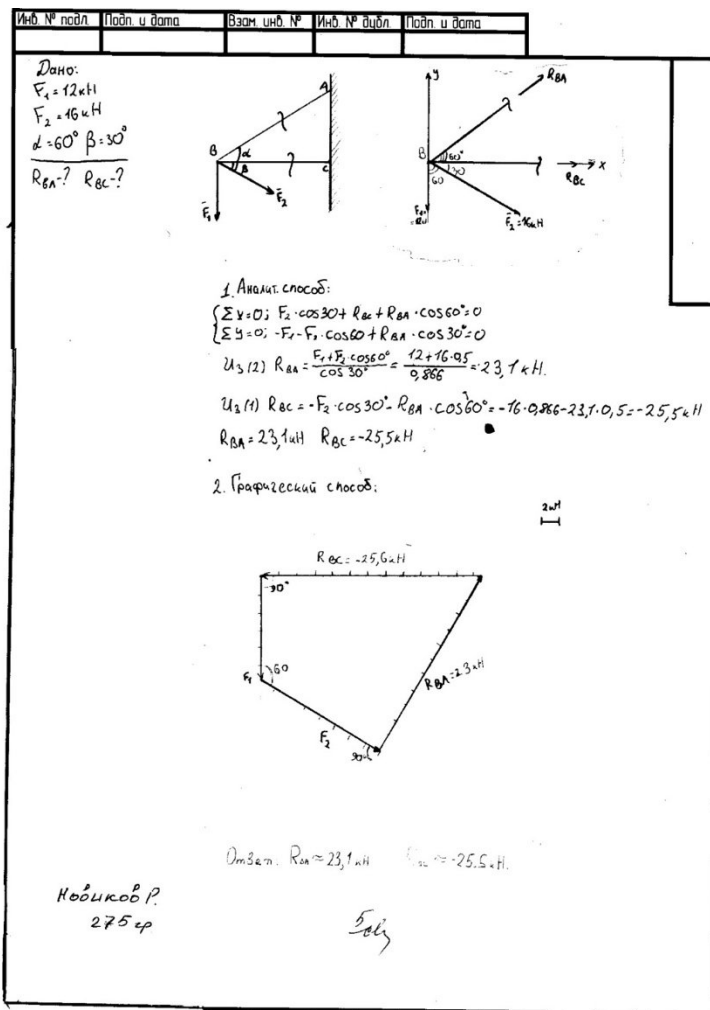 Инв. № подл. Подп. и дата Взам. инв. № Инв. № дубл. Подп. и дата
Дано:
F₁ = 12кН
F₂ = 16кН
α = 60° β = 30°
R_BA-? R_BC-?
A
B
α
β
C
F̄₁
F̄₂
y
R_BA
B
60°
30
60
R_BC
x
F₂ = 16кН
1. Аналит. способ:
Σx=0; F₂·cos30 + R_BC + R_BA·cos60°=0
Σy=0; -F₁-F₂·cos60 + R_BA·cos30°=0
Из(2) R_BA = (F₁+F₂·cos60°)/(cos 30°) = (12+16·0,5)/(0,866) = 23,1 кН.
Из(1) R_BC = -F₂·cos30° - R_BA·cos60° = -16·0,866-23,1·0,5 = -25,5кН
R_BA = 23,1кН R_BC = -25,5кН
2. Графический способ:
2кН
R_BC = -25,6кН
90°
F₁
60
R_BA = 23кН
F₂
90°
Ответ. R_BA ≈ 23,1кН ≈ -25.5кН.
Новиков Р.
275 гр
5